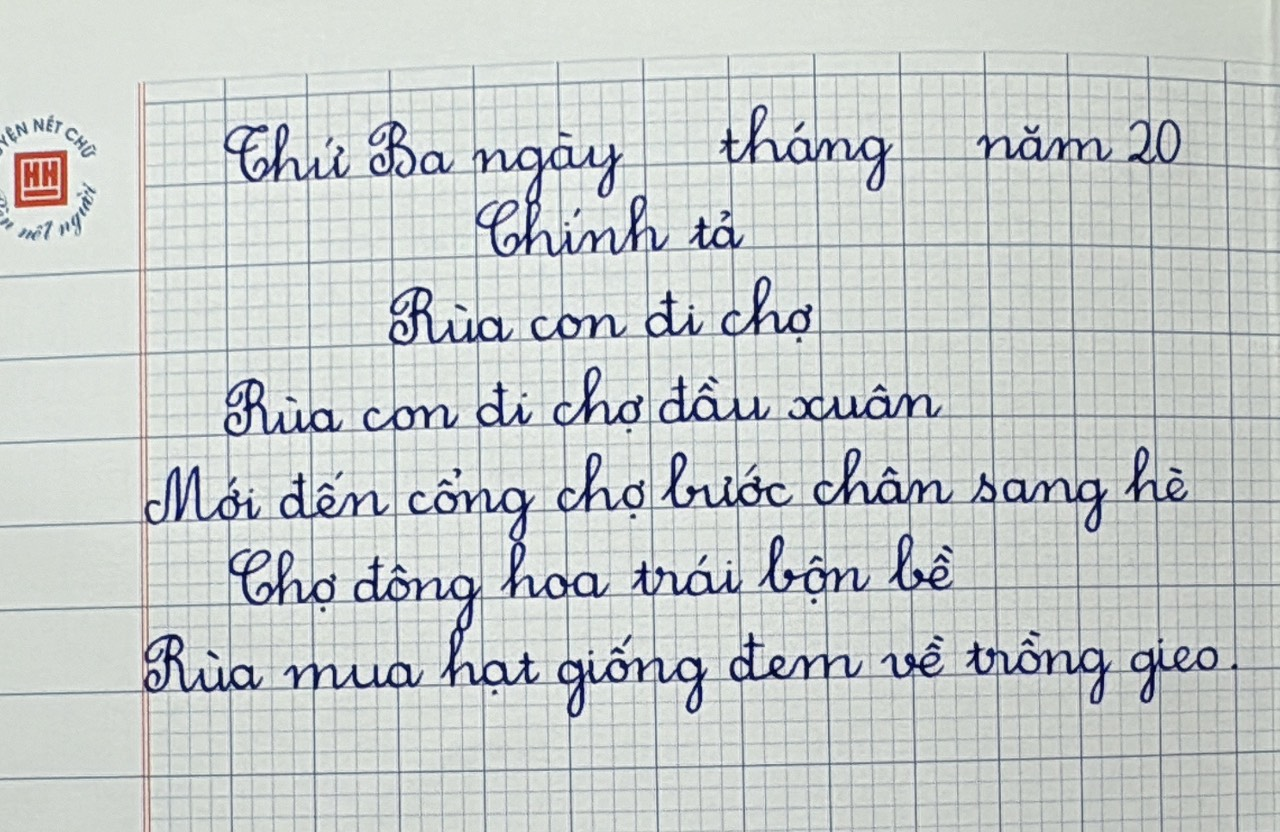 YỆN NÉT CHỮ
HH
nết người
Thứ Ba ngày tháng năm 20
Chính tả
Rùa con đi chợ
Rùa con đi chợ đầu xuân
Mới đến cổng chợ bước chân sang hè
Chợ đông hoa trái bộn bề
Rùa mua hạt giống đem về trồng gieo.